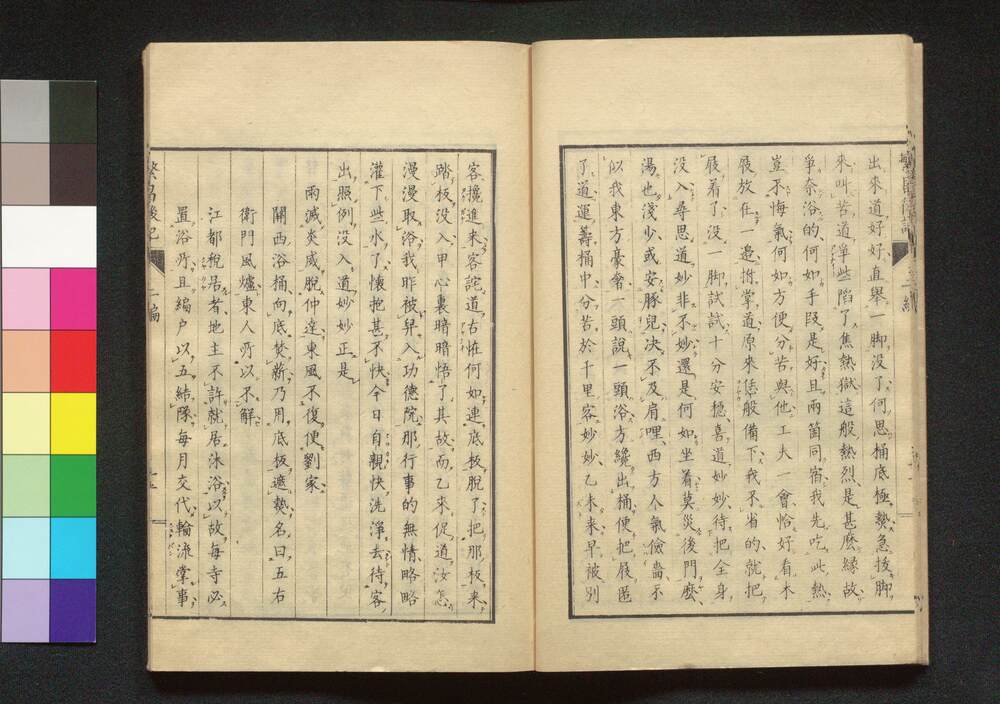 出來道好好直舉一脚没了何思桶底極熱急技脚
來叫苦道單些陷了焦熱獄這般熱烈是甚麽縁故
爭奈浴的何如手段是好且兩箇同宿我先吃此熱
豈不悔氣何如方便分苦與他工夫一會恰好看木
屐放在一邊拊掌道原來恁般備下我不省的就把
屐着了没一脚試試十分安穏喜道妙妙待把全身
没入尋思道妙非不妙還是何如坐着莫災後門麽
湯也淺少或安豚兒決不及肩哩西方人氣儉嗇不
似我東方豪奢一頭説一頭浴方纔出桶便把屐匿
了道運籌桶中分苦於千里客妙妙乙未來早被別
客攙進來客詫道古怪何如連底板脱了把那板來
踏板没入甲心裏暗暗悟了其故而乙來促道汝怎
漫漫取浴我昨被舁入功德院那行事的無情略略
灌下些水了懷抱甚不快今日自親快洗淨去待客
出照例没入道妙妙正是
雨滅炎威脱仲達東風不復便劉家
關西浴桶向底焚薪乃用底板遮熱名曰五右
衛門風爐東人所以不解
江都税居者地主不許就居沐浴以故毎寺必
置浴所且編戸以五結隊毎月交代輪流掌事
二編